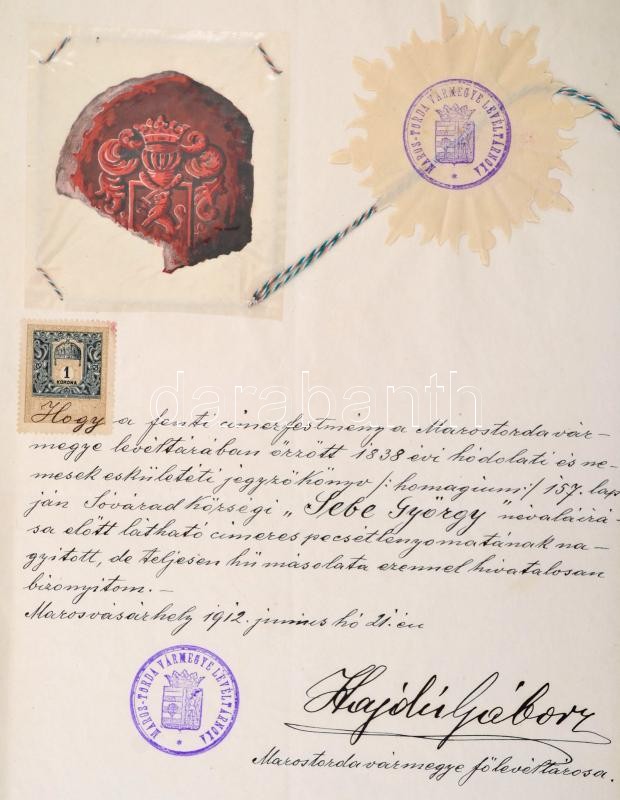 MAROS-TORDA VÁRMEGYE LEVÉLTÁRNOKA
1
KORONA
Hogy a fenti címerfestmény a Marostorda vár-
megye levéltárában őrzött 1838 évi hódolati és ne-
mesek eskületeti jegyzőkönyv /:homagium:/ 157. lap-
ján Sóvárad községi „Sebe György" névaláírá-
sa előtt látható címeres pecsétlenyomatának na-
gyított, de teljesen hű másolata ezennel hivatalosan
bizonyítom.-
Marosvásárhely 1912. junius hó 21.-én
MAROS-TORDA VÁRMEGYE LEVÉLTÁRNOKA
Hajdú Gábor
Marostorda vármegye főlevéltárosa.
darabanth